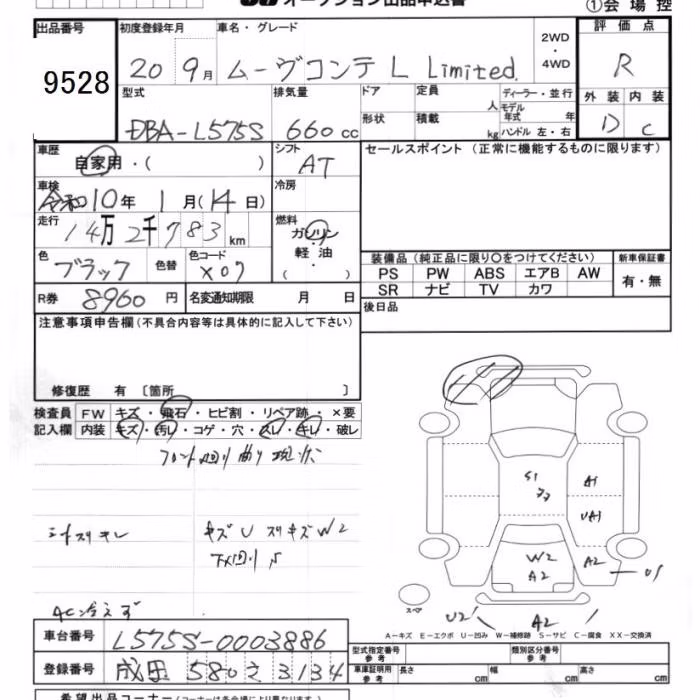 オークション出品申込書 ①会場控
出品番号 初度登録年月 車名・グレード 2WD・4WD 評価点
9528 20 9月 ムーヴコンテ L Limited R
型式 排気量 ドア 定員 人 ディーラー・並行 モデル年式 年 外装 内装
DBA-L575S 660cc 形状 積載 kg ハンドル 左・右 D C
車歴 自家用・( ) シフト AT セールスポイント(正常に機能するものに限ります)
車検 令和10年 1月(14日) 冷房
走行 14万2千783km 燃料 ガソリン・軽油・( )
色 ブラック 色替 色コード X07
装備品(純正品に限り〇をつけてください) 新車保証書
PS PW ABS エアB AW 有・無
SR ナビ TV カワ
R券 8960円 名変通知期限 月 日 後日品
注意事項申告欄(不具合内容等は具体的に記入して下さい)
修復歴 有 〔箇所 〕
検査員記入欄 FW キズ・飛石・ヒビ割・リペア跡・×要
内装 キズ・汚れ・コゲ・穴・スレ・キレ・破レ
フロント廻り曲り
シートスリキレ キズU スリキズ W2
下廻りS
AC冷えず
S1 A1
UA1
W2 A2 A2 U1
スペア U2 A2
A-キズ E-エクボ U-凹み W-補修跡 S-サビ C-腐食 XX-交換済
車台番号 L575S-0003886
型式指定番号 参考 類別区分番号 参考
登録番号 成田 580 そ 3134
車庫証明用 参考 長さ cm 幅 cm 高さ cm
希望出品コーナー(コーナーは各会場により異なります)